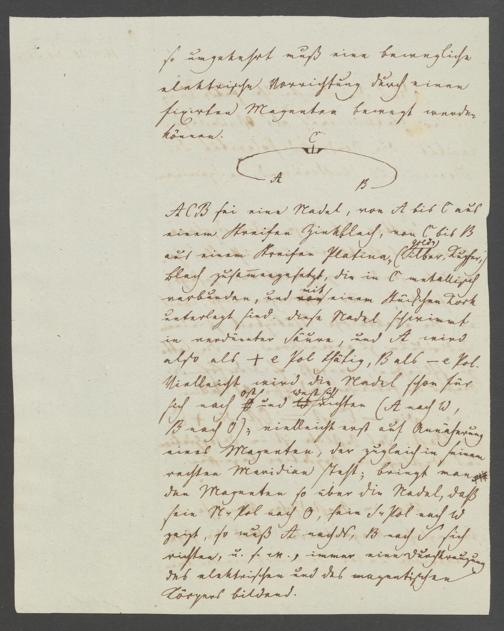 so umgekehrt muß eine bewegliche
elektrische Vorrichtung durch einen
fixirten Magneten bewegt werden
können.
C
A B
ACB sei eine Nadel, von A bis C aus
einem Streifen Zinkblech, von C bis B
aus einem Streifen Platina, (Gold, Silber, Kupfer)
blech zusammengesetzt, die in C metallisch
verbunden, und mit einem Stückchen Kork
unterlegt sind. diese Nadel schwimmt
in verdünnter Säure, und A wird
also als + e Pol thätig, B als – e Pol.
Vielleicht wird die Nadel schon für
sich nach Ost und West sich richten (A nach W,
B nach O); vielleicht erst auf Annäherung
eines Magneten, der zugleich in seinem
rechten Meridian steht; bringt man
den Magneten so über die Nadel, daß
sein N-Pol nach O, sein S-Pol nach W
zeigt, so muß A nach N, B nach S sich
richten, u. s. w., immer eine Durchkreuzung
des elektrischen und des magnetischen
Körpers bildend.